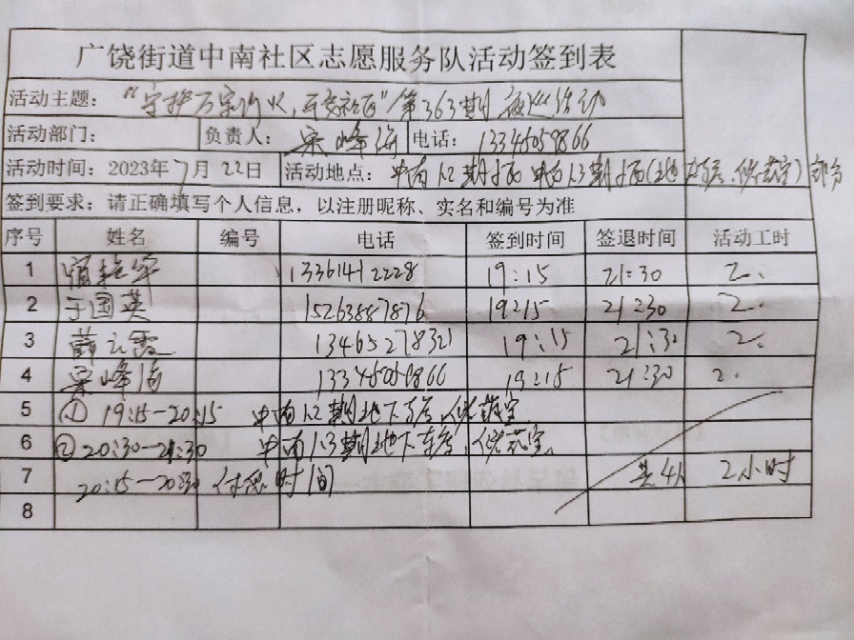 广饶街道中南社区志愿服务队活动签到表
活动主题：“守护万家灯火，平安社区”第363期夜巡活动
活动部门： 负责人：宋峰海 电话：13345059866
活动时间：2023年7月22日 活动地点：中南1.2期 中南1.3期
签到要求：请正确填写个人信息，以注册昵称、实名和编号为准
序号 姓名 编号 电话 签到时间 签退时间 活动工时
1 13361412228 19:15 21:30 2.
2 于国英 15263887876 19:15 21:30 2.
3 薛云霞 13465278321 19:15 21:30 2.
4 宋峰海 13345059866 19:15 21:30 2.
5 ① 19:15-20:15 中南1.2期地下车库、储藏室
6 ② 20:30-21:30 中南1.3期地下车库、储藏室。
7 20:15-20:30 休息时间 共4人 2小时
8